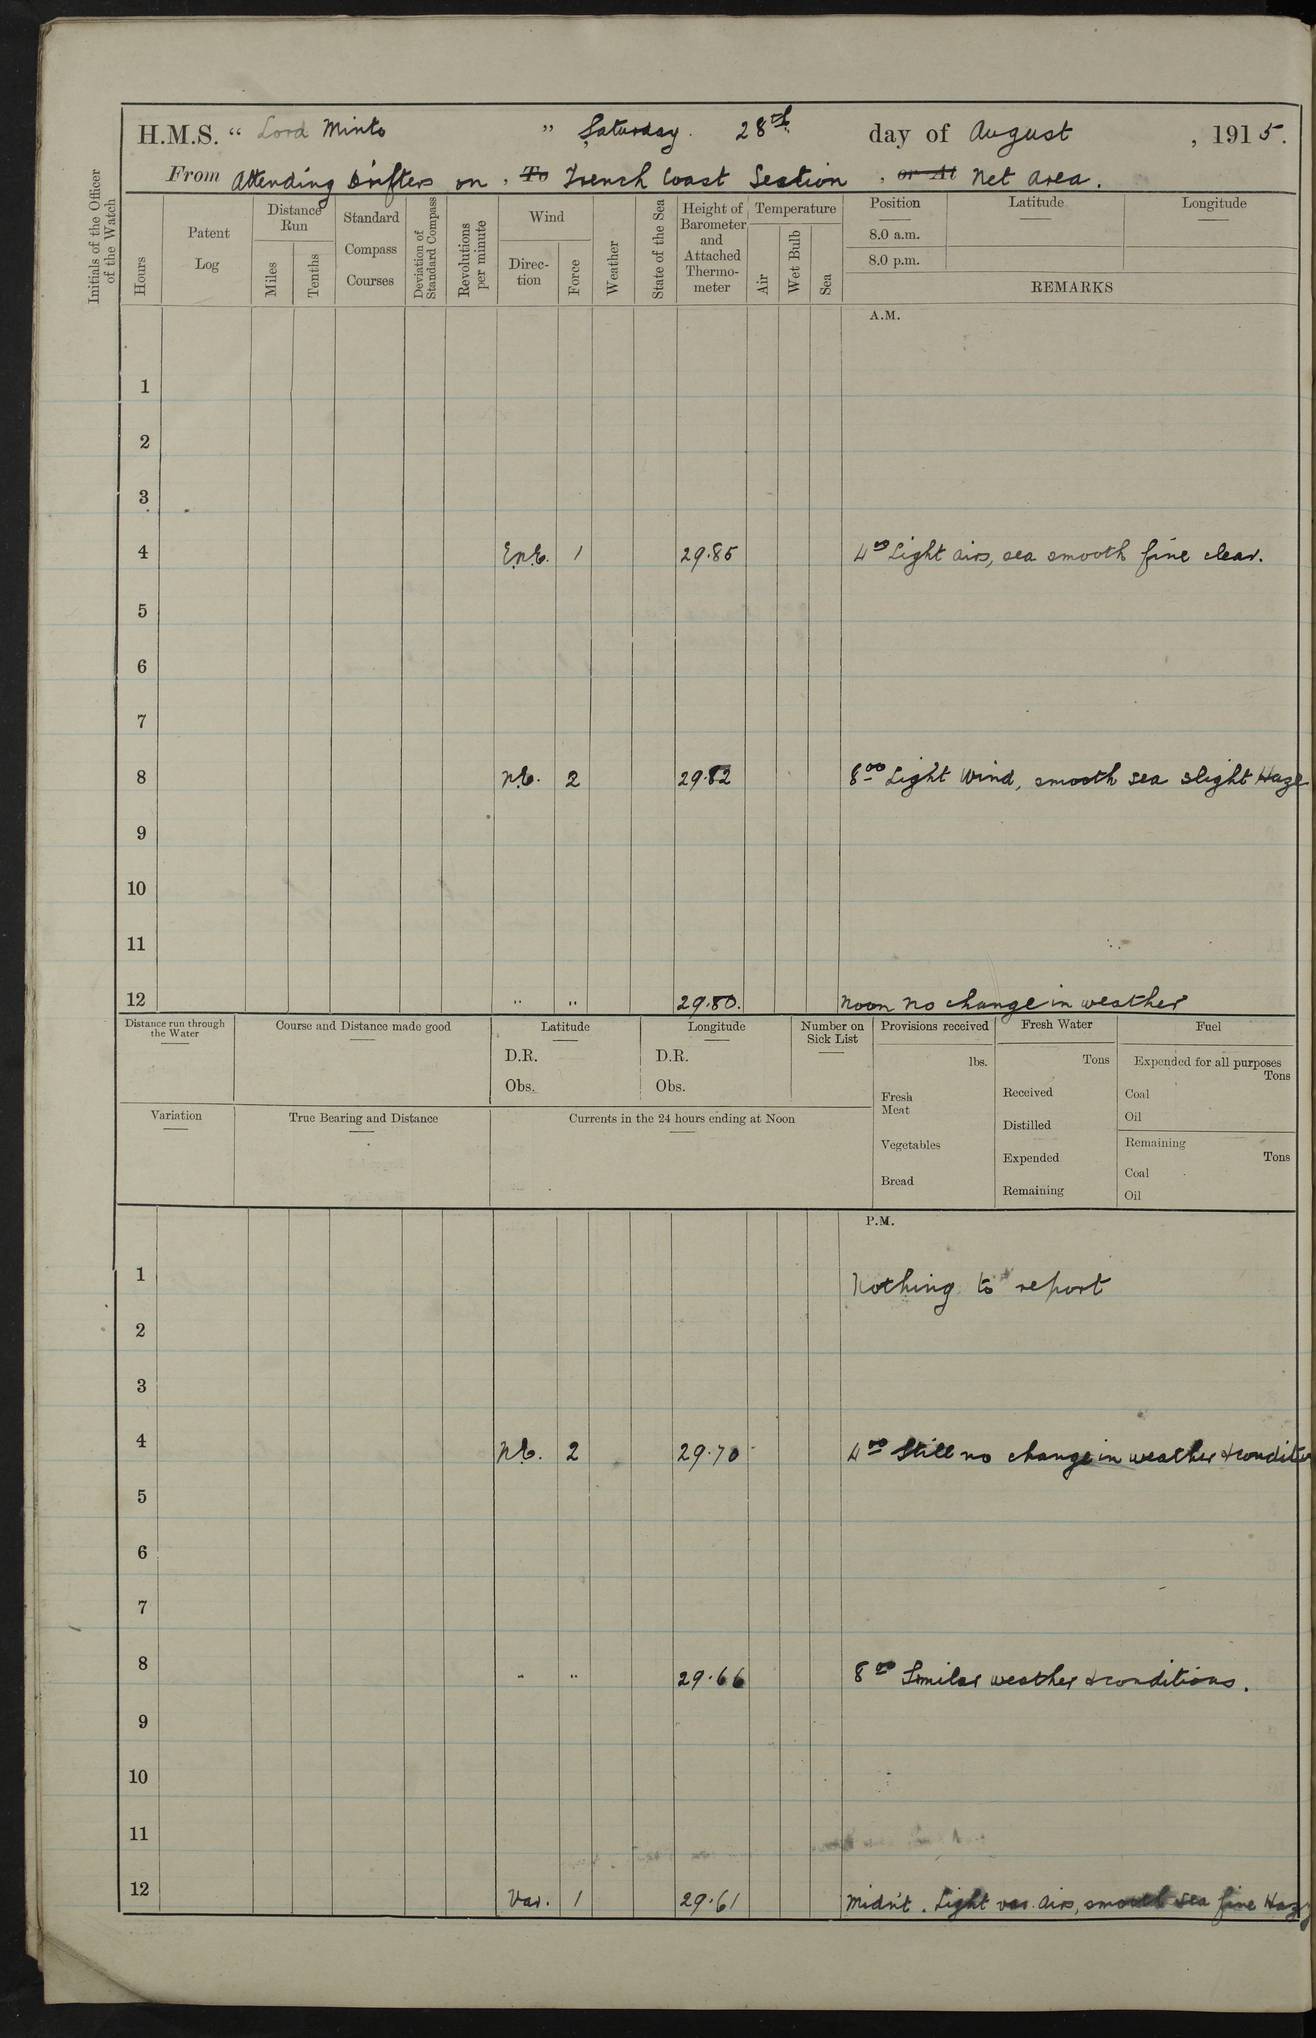 H.M.S. “ Lord Minto ” Saturday. 28th day of August , 1915.
From Attending Drifters on , To French Coast Section , or At Net Area.
Initials of the Officer of the Watch
Hours
Patent Log
Distance Run
Miles
Tenths
Standard Compass Courses
Deviation of Standard Compass
Revolutions per minute
Wind
Direction
Force
Weather
State of the Sea
Height of Barometer and Attached Thermometer
Temperature
Air
Wet Bulb
Sea
Position
8.0 a.m.
8.0 p.m.
Latitude
Longitude
REMARKS
A.M.
1
2
3
4 E.N.E. 1 29.85 4 00 Light airs, sea smooth fine clear.
5
6
7
8 N.E. 2 29.82 8 00 Light Wind, smooth sea slight Haze
9
10
11
12 " " 29.80. Noon No change in weather
Distance run through the Water
Course and Distance made good
Latitude
D.R.
Obs.
Longitude
D.R.
Obs.
Number on Sick List
Provisions received
lbs.
Fresh Meat
Vegetables
Bread
Fresh Water
Tons
Received
Distilled
Expended
Remaining
Fuel
Expended for all purposes
Tons
Coal
Oil
Remaining
Tons
Coal
Oil
Variation
True Bearing and Distance
Currents in the 24 hours ending at Noon
P.M.
1 Nothing to report
2
3
4 N.E. 2 29.70 4 00 Still no change in weather &
5
6
7
8 " " 29.66 8 00 Similar weather & conditions.
9
10
11
12 Var. 1 29.61 Midn't. Light var. airs, smooth sea fine Hazy